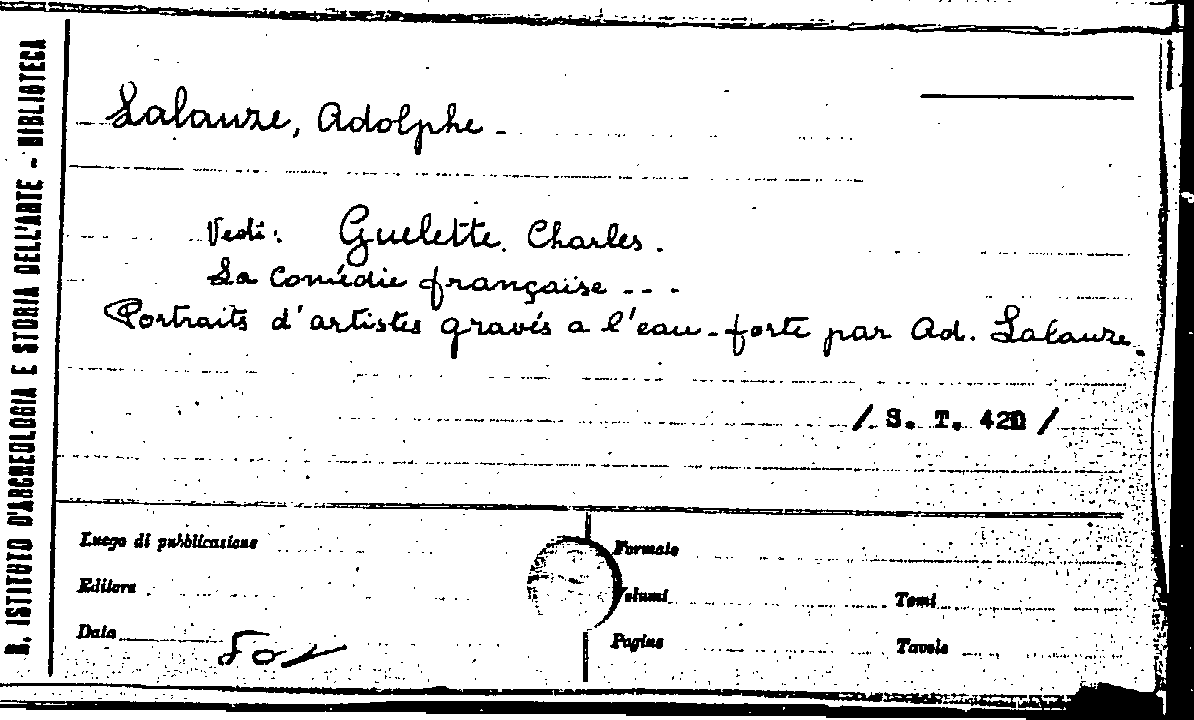 R. ISTITUTO D'ARCHEOLOGIA E STORIA DELL'ARTE - BIBLIOTECA
Lalauze, Adolphe -
Vedi: Guelette. Charles.
La Comédie française ---
Portraits d'artistes gravés a l'eau-forte par Ad. Lalauze.
/ S. T. 420 /
Luogo di pubblicazione
Formato
Editore
Volumi
Tomi
Data
Pagine
Tavole